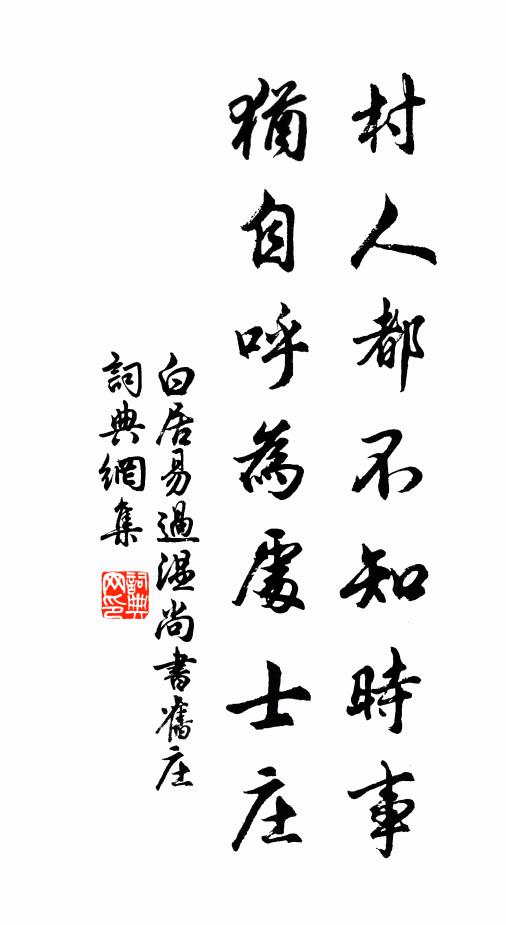 村人都不知時事
猶自呼為處士庄
白居易過溫尚書舊庄
詞典網集
詞典网印